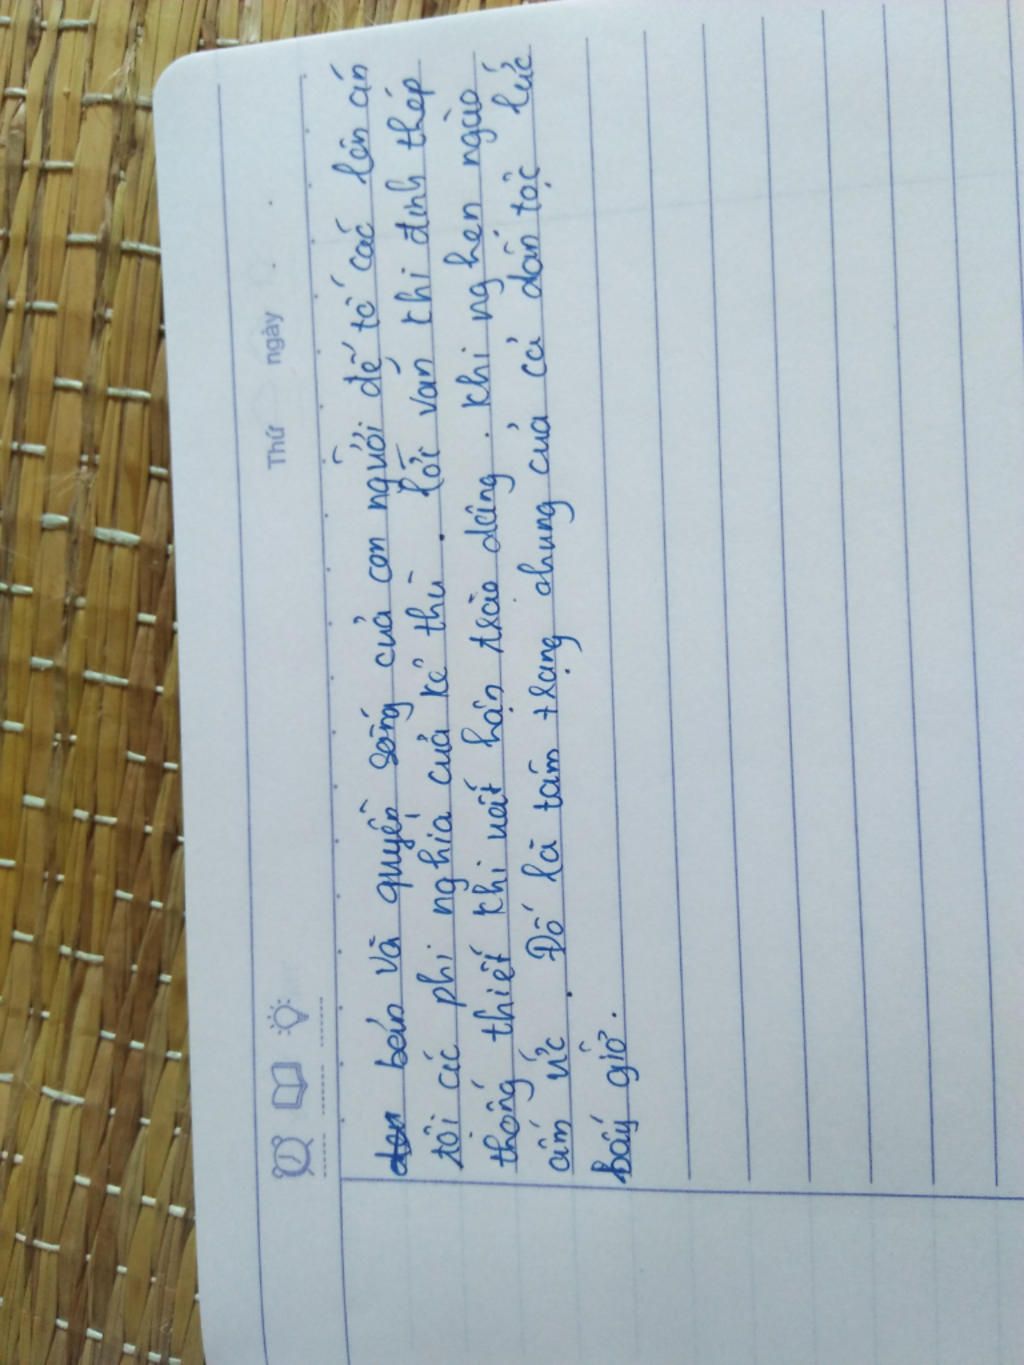 Thứ ngày
bản và quyền sống của con người để tố cáo lên án
tội ác phi nghĩa của kẻ thù . lời văn khi đanh thép
thống thiết khi uất hận trào dâng . khi nghẹn ngào
ấm ức . Đó là tâm trạng chung của cả dân tộc lúc
bấy giờ .